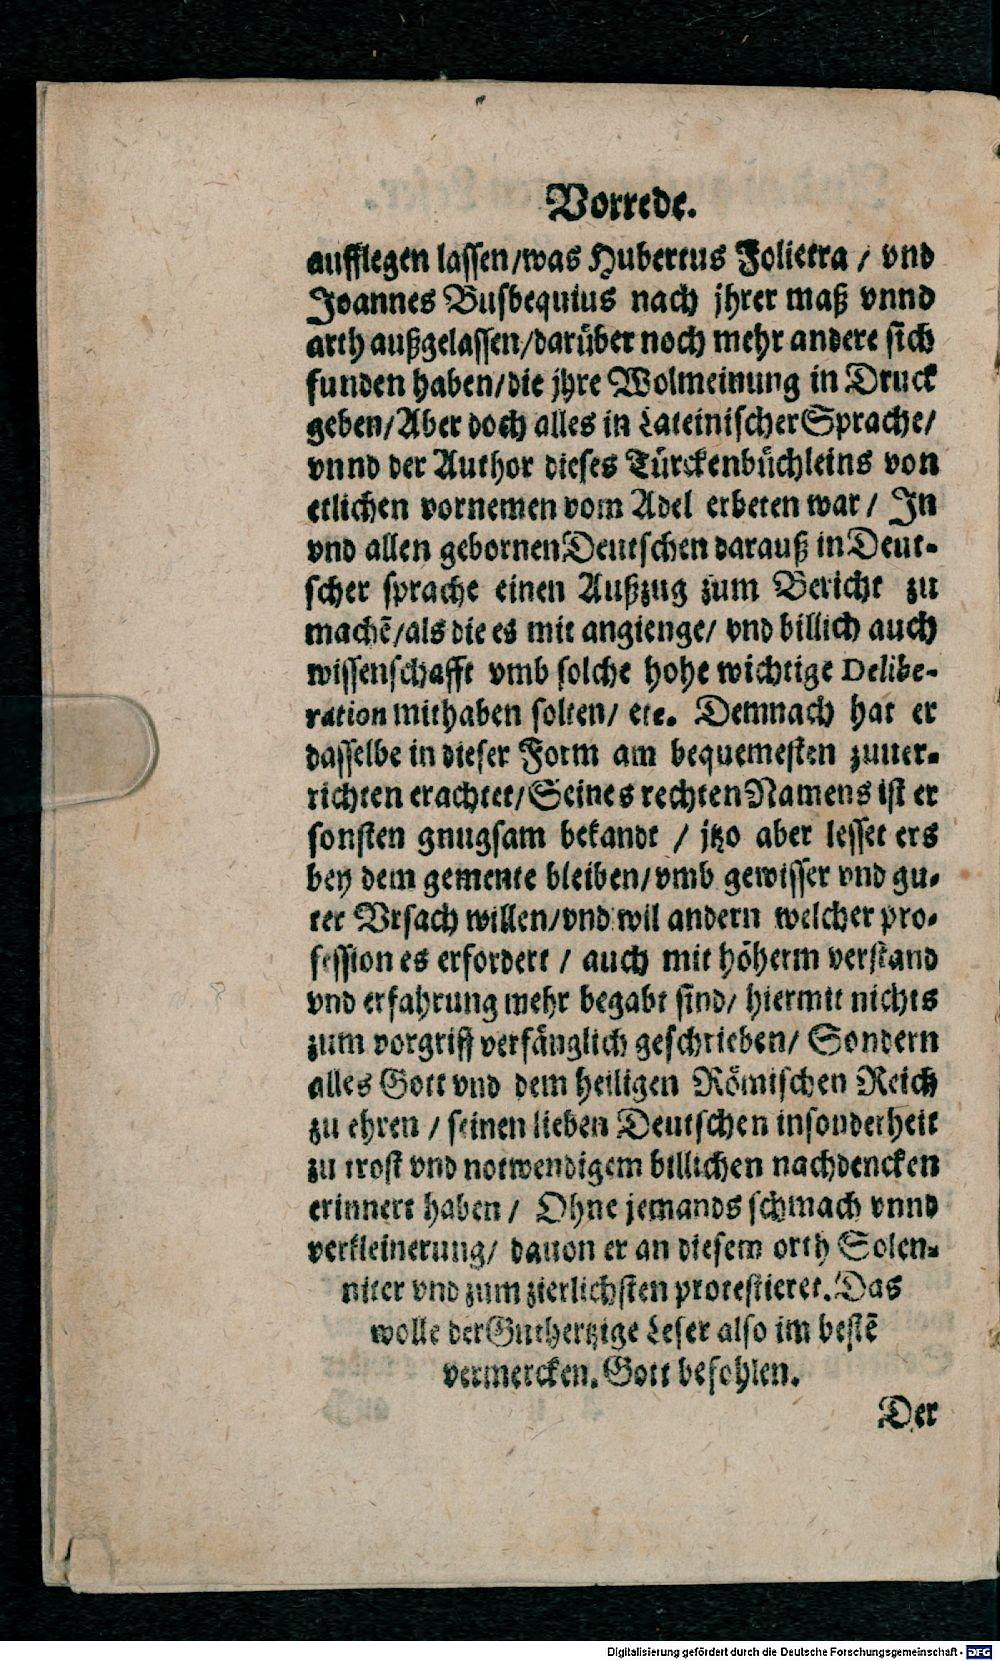 Vorrede.
aufflegen lassen/was Hubertus Folietra / vnd
Joannes Busbequius nach jhrer maß vnnd
arth außgelassen/darüber noch mehr andere sich
funden haben/die jhre Wolmeinung in Druck
geben/Aber doch alles in Lateinischer Sprache/
vnnd der Author dieses Türckenbüchleins von
etlichen vornemen vom Adel erbeten war / Jn
vnd allen gebornen Deutschen darauß in Deut-
scher sprache einen Außzug zum Bericht zu
machẽ/als die es mit angienge/ vnd billich auch
wissenschafft vmb solche hohe wichtige Delibe-
ration mithaben solten/ etc. Demnach hat er
dasselbe in dieser Form am bequemesten zuuer-
richten erachtet/Seines rechten Namens ist er
sonsten gnugsam bekandt / jtzo aber lesset ers
bey dem gemente bleiben/vmb gewisser vnd gu-
ter Vrsach willen/vnd wil andern welcher pro-
fession es erfordert / auch mit höherm verstand
vnd erfahrung mehr begabt sind/ hiermit nichts
zum vorgriff verfänglich geschrieben/ Sondern
alles Gott vnd dem heiligen Römischen Reich
zu ehren / seinen lieben Deutschen insonderheit
zu trost vnd notwendigem billichen nachdencken
erinnert haben / Ohne jemands schmach vnnd
verkleinerung/ dauon er an diesem orth Solen-
niter vnd zum zierlichsten protestieret. Das
wolle der Guthertzige Leser also im bestẽ
vermercken. Gott befohlen.
Der
Digitalisierung gefördert durch die Deutsche Forschungsgemeinschaft - DFG